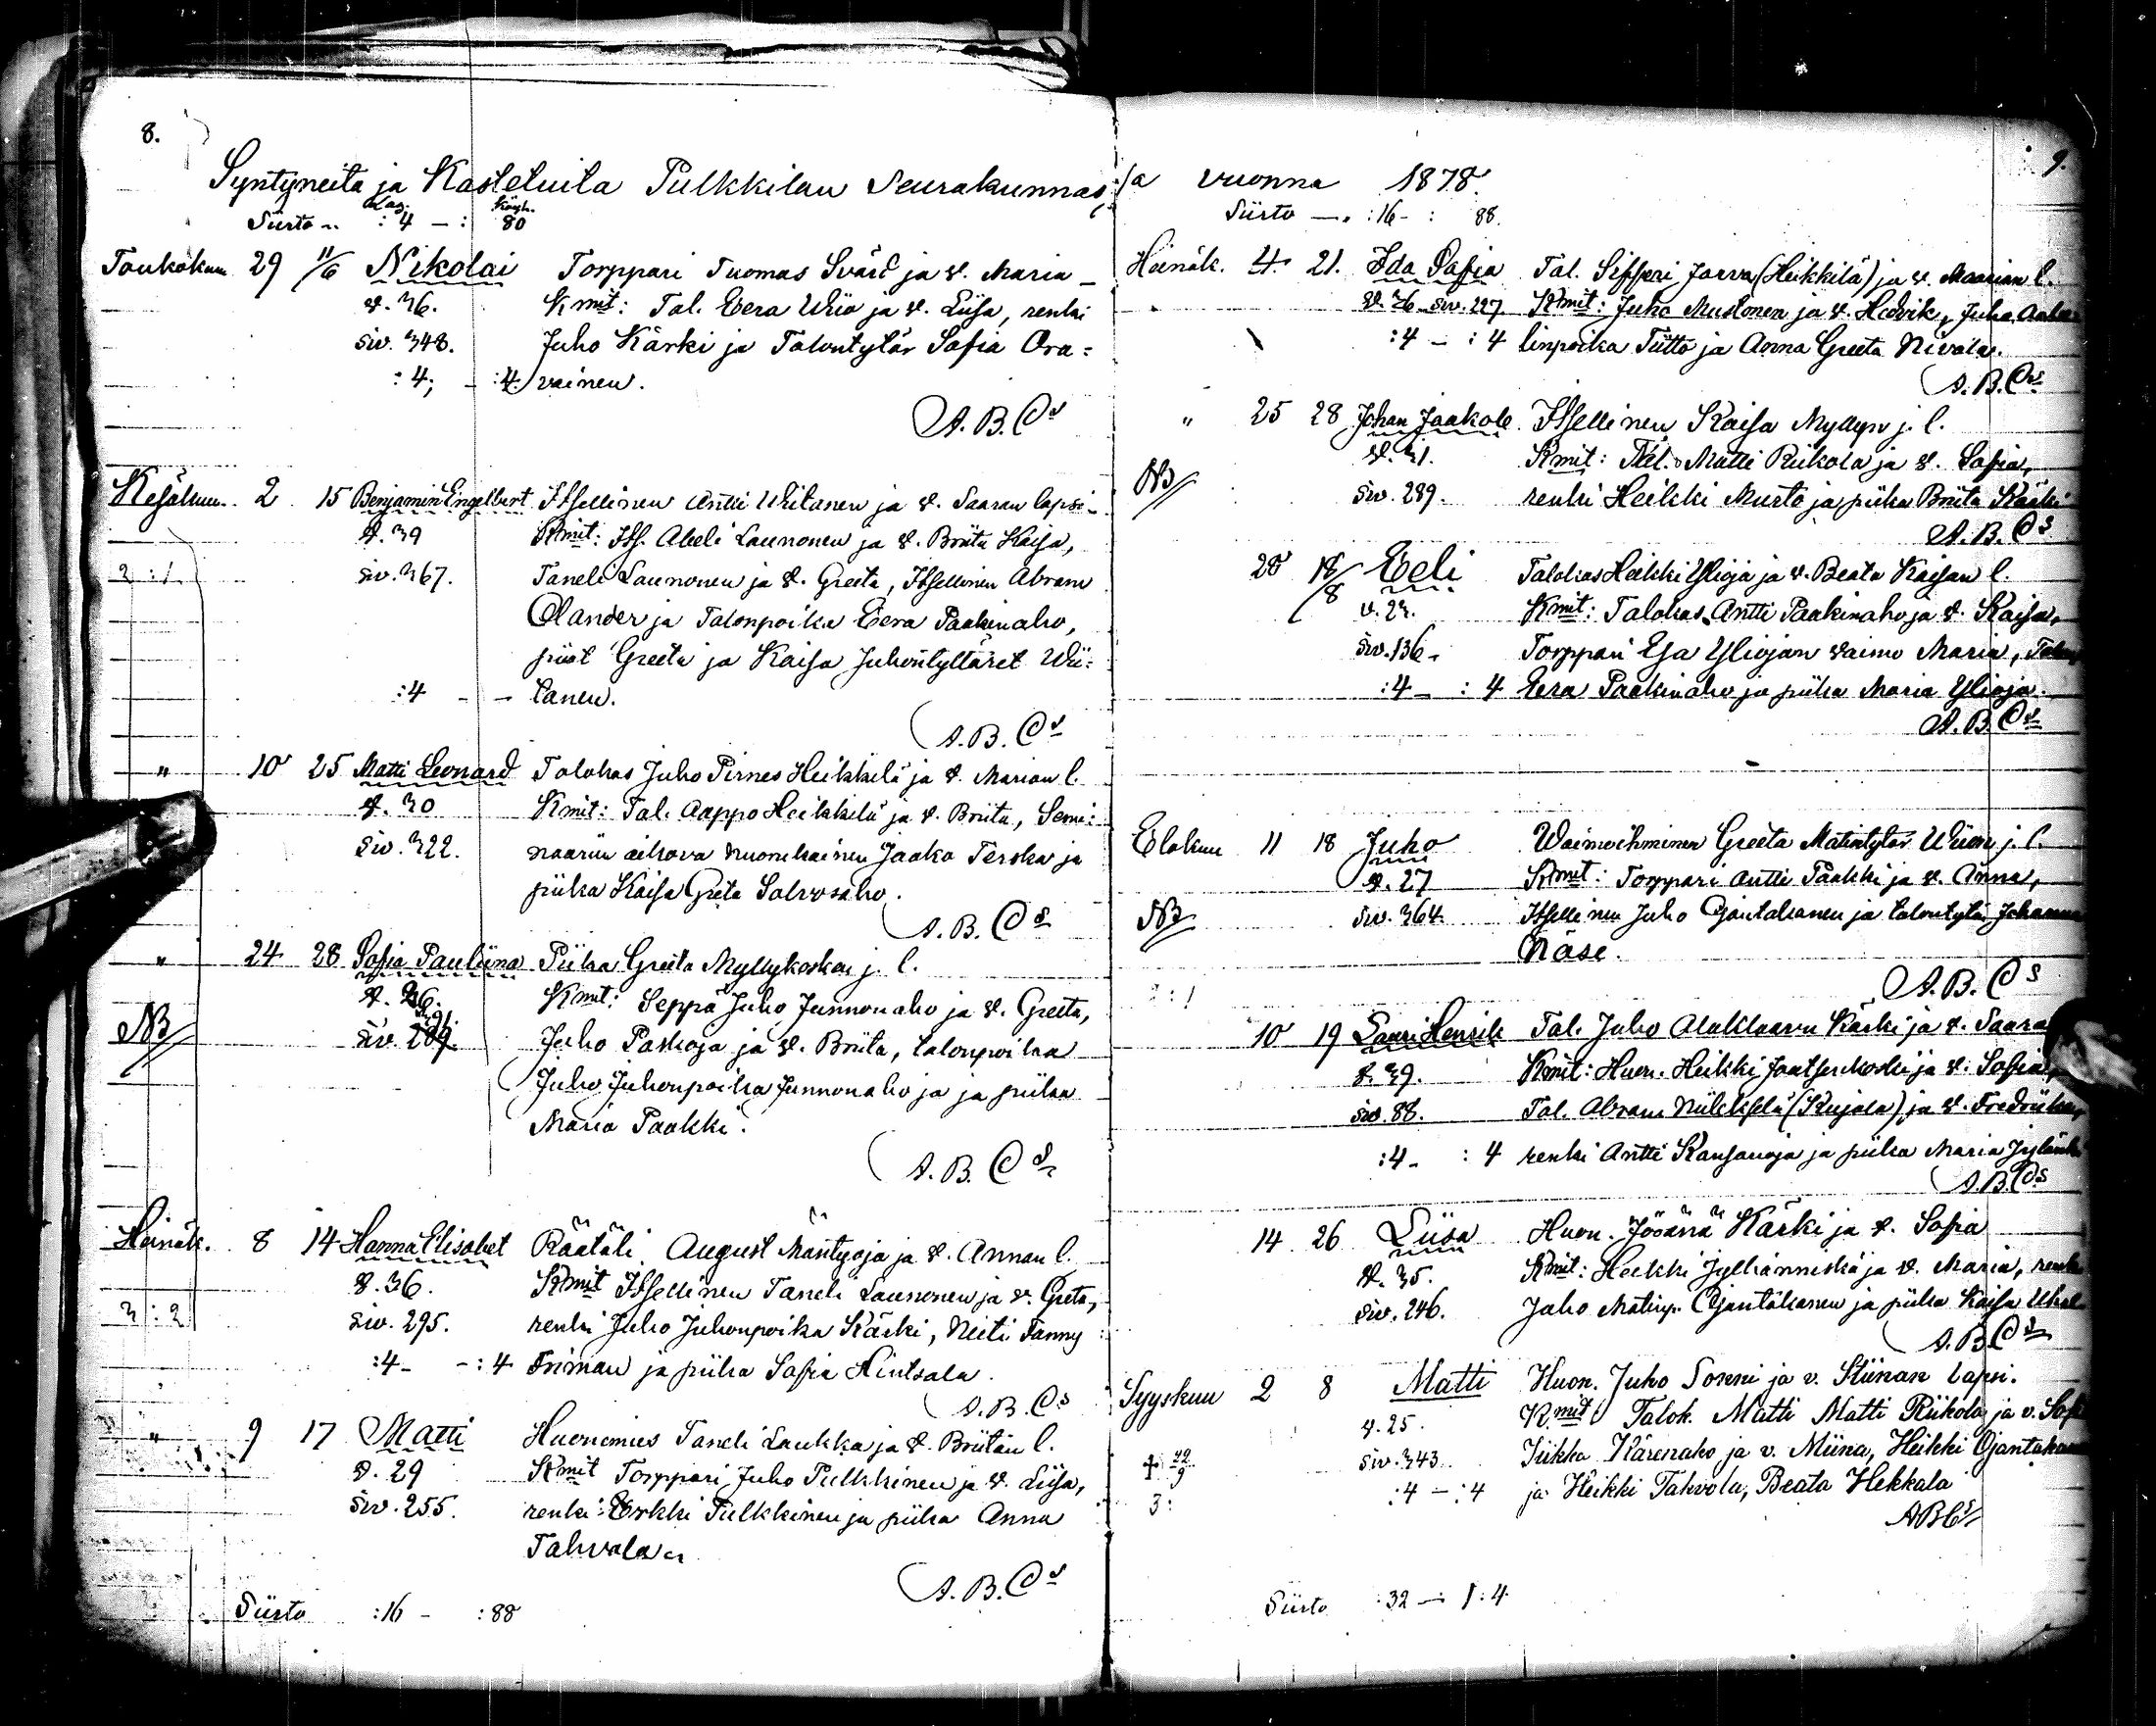 8.
Syntyneitä ja Kastetuita Pulkkilan Seurakunnas
Siirto :4 — : 80
Toukokuu 29 11/6 Nikolai Torppari Tuomas Svärd ja v. Maria
v. 36. Kmit: Tal. Eera Wiio ja v. Liisa, renki
siv. 348. Juho Kärki ja Talontytär Sofia Ora=
:4; - :4 vainen.
A. B. Cs
Kesäkuu 2 15 Benjamin Engelbert Itsellinen Antti Wiitanen ja v. Saaran lapsi
v. 39 Kmit: Its. Abeli Launonen ja v. Briita Kaisa,
2:1 siv. 367. Taneli Launonen ja v. Greeta, Itsellinen Abram
Olander ja Talonpoika Eera Paakinaho,
piiat Greeta ja Kaisa Juhontyttäret Wii=
:4 - - tanen.
A. B. Cs
" 10 25 Matti Leonard Talokas Juho Pirnes Heikkilä ja v. Marian l.
v. 30 Kmit: Tal. Aappo Heikkilä ja v. Briita, Semi=
siv. 322. naariin aikova nuorukainen Jaako Terska ja
piika Kaisa Greta Salvosaho.
A. B. Cs
" 24 28 Sofia Pauliina Piika Greeta Myllykosken j. l.
v. 26. Kmit: Seppä Juho Junnonaho ja v. Greeta,
NB siv. Juho Paskoja ja v. Briita, talonpoika
Juho Juhonpoika Junnonaho ja ja piika
Maria Paakki.
A. B. Cs
Heinäk. 8 14 Hanna Elisabet Räätäli August Mäntyoja ja v. Annan l.
v. 36. Kmit Itsellinen Taneli Launonen ja v. Greta,
3:2 siv. 295. renki Juho Juhonpoika Kärki, Neiti Fanny
:4 - - :4 Friman ja piika Sofia Hintsala.
A. B. Cs
" 9 17 Matti Huonemies Taneli Laukka ja v. Briitan l.
v. 29 Kmit Torppari Juho Pulkkinen ja v. Liisa,
siv. 255. renki Erkki Pulkkinen ja piika Anna
Tahvola.
A. B. Cs
Siirto :16 - :88
9.
sa vuonna 1878.
Siirto — :16 - : 88.
Heinäk. 4. 21. Ida Sofia Tal. Sifferi Jarva (Heikkilä) ja v. Maarian l.
v. 26 siv. 227 Kmit: Juho Mustonen ja v. Hedvik, Juho
:4 — :4 linpoika Tiitto ja Anna Greeta Nivala.
A. B. Cs
" 25 28 Johan Jaakob Itsellinen Kaisa Myllyn j. l.
v. 31. Kmit: Tal. Matti Riikola ja v. Sofia,
NB siv. 289. renki Heikki Murto ja piika Briita Kärki
A. B. Cs
28 18/8 Eeli Talokas Heikki Ylioja ja v. Beata Kaisan l.
v. 23. Kmit: Talokas Antti Paakinaho ja v. Kaisa,
siv. 136. Torppari Esa Yliojan vaimo Maria,
:4 — :4 Eera Paakinaho ja piika Maria Ylioja.
A. B. Cs
Elokuu 11 18 Juho Waimoihminen Greeta Matintytär Wiion j. l.
v. 27 Kmit: Torppari Antti Paakki ja v. Anna,
NB siv. 364. Itsellinen Juho Ojantakanen ja talontytär Johanna
Näse.
2:1
A. B. Cs
10 19 Lauri Henrik Tal. Juho Alaklaavu Kärki ja v. Saara
v. 39. Kmit: Huon. Heikki Jaatsenkoski ja v. Sofia,
siv. 88. Tal. Abram Niilekselä (Kujala) ja v. Fredriika,
:4 - :4 renki Antti Kansanoja ja piika Maria
A. B. Cs
14 26 Liisa Huon. Jööärä Kärki ja v. Sofia
v. 35. Kmit: Heikki Jylhänniska ja v. Maria, renki
siv. 246. Juho Matinp. Ojantakanen ja piika Kaisa
A. B. Cs
Syyskuu 2 8 Matti Huon. Juho Sonni ja v. Stiinan lapsi.
v. 25. Kmit Talok. Matti Matti Riikola ja v. Sofi
† 22/9 siv. 343 Jiikka Kärenaho ja v. Miina, Heikki Ojantakan
3: :4 — :4 ja Heikki Tahvola, Beata Hekkala
ABCs
Siirto :32 — 1:4